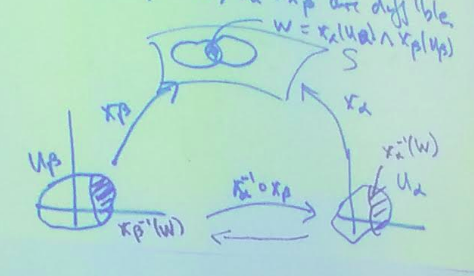 xβ are diff'ble
W = xα(Uα) ∧ xβ(Uβ)
S
xβ
xα
Uβ
xα⁻¹(W)
Uα
xα⁻¹ ∘ xβ
xβ⁻¹(W)